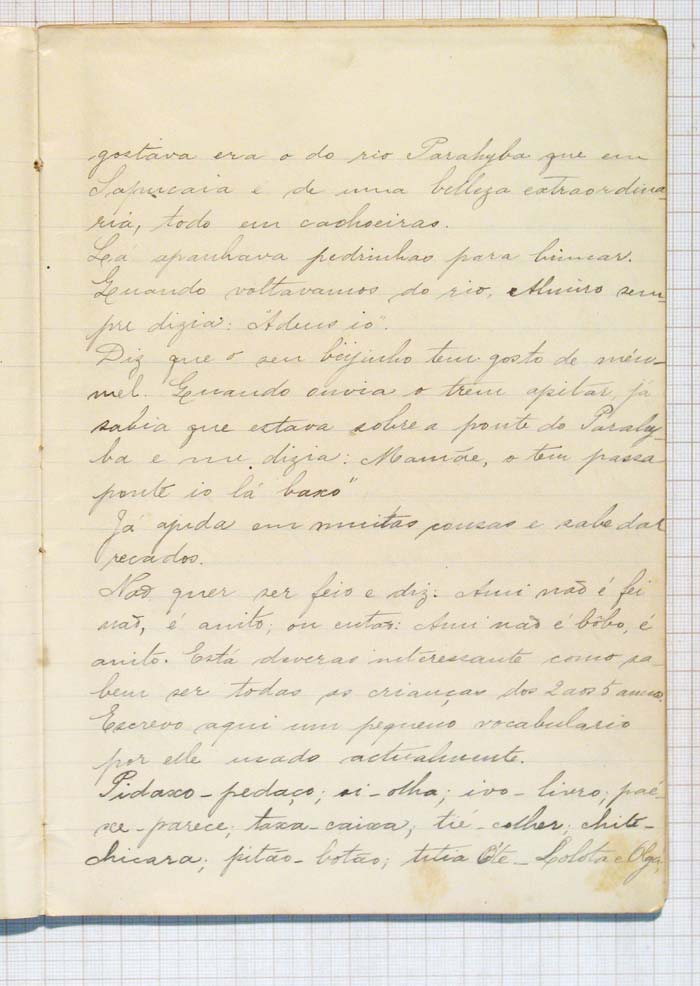 gostava era o do rio Parahyba que em
Sapucaia é de uma belleza extraordina-
ria, todo em cachoeiras.
Lá apanhava pedrinhas para brincar.
Quando voltavamos do rio, Almiro sem-
pre dizia: "Adeus io".
Diz que o seu beijinho tem gosto de méu-
mel. Quando ouvia o trem apitar, já
sabia que estava sobre a ponte do Parahy-
ba e me dizia: Mamãe, o tem passa
ponte io lá baxo"
Já ajuda em muitas cousas e sabe dar
recados.
Não quer ser feio e diz: Ami não é fei
não, é anito; ou então: Ami não é bôbo, é
anito. Está deveras interessante como sa-
bem ser todas as crianças dos 2 aos 5 annos.
Escrevo aqui um pequeno vocabulario
por elle usado actualmente.
Pidaxo - pedaço; oi - olha; ivo - livro; paé-
xe - parece; taxa - caixa; tié - colher; chite-
chicara; pitão - botão; titia Óte - Lolota e Olga;